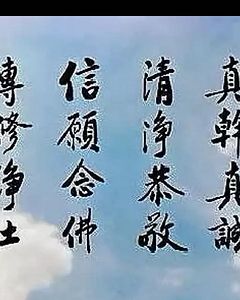 真幹真誠
清淨恭敬
信願念佛
專修淨土